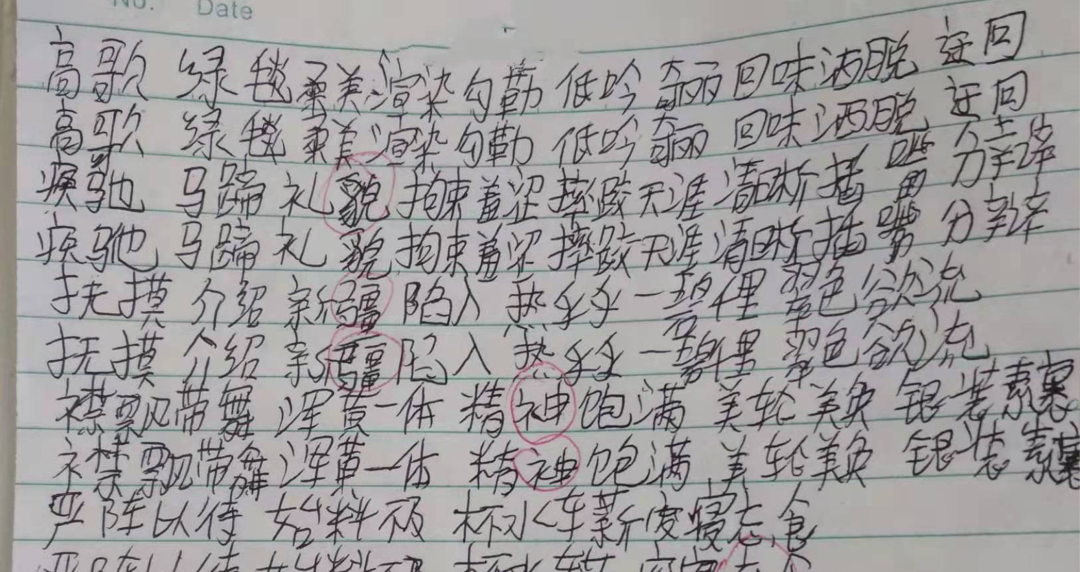 No. Date
高歌 绿毯 柔美 渲染 勾勒 低吟 奇丽 回味 洒脱 迂回
高歌 绿毯 柔美 渲染 勾勒 低吟 奇丽 回味 洒脱 迂回
疾驰 马蹄 礼貌 拘束 羞涩 摔跤 天涯 清晰 插嘴 分辨
疾驰 马蹄 礼貌 拘束 羞涩 摔跤 天涯 清晰 插嘴 分辨
抚摸 介绍 新疆 陷入 热乎乎 一碧 翠色欲流
抚摸 介绍 新疆 陷入 热乎乎 一碧 翠色欲流
襟飘带舞 浑黄一体 精神饱满 美轮美奂 银装素裹
襟飘带舞 浑黄一体 精神饱满 美轮美奂 银装素裹
严阵以待 始料不及 杯水车薪 废寝忘食